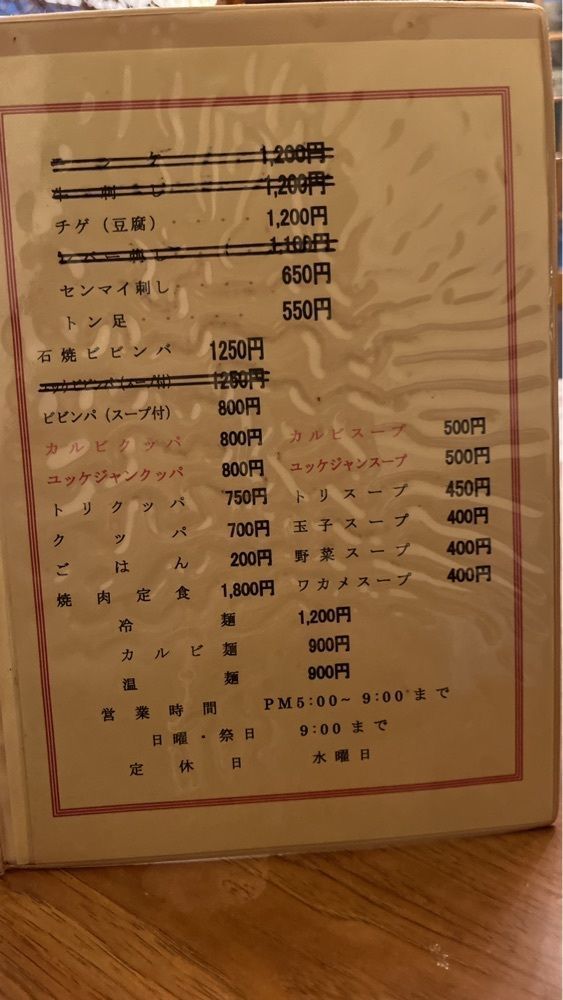 ユッケ 1,200円
牛刺し 1,200円
チゲ（豆腐） 1,200円
レバー刺し 1,100円
センマイ刺し 650円
トン足 550円
石焼ビビンバ 1250円
ユッケビビンバ（スープ付） 1250円
ビビンバ（スープ付） 800円
カルビクッパ 800円 カルビスープ 500円
ユッケジャンクッパ 800円 ユッケジャンスープ 500円
トリクッパ 750円 トリスープ 450円
クッパ 700円 玉子スープ 400円
ごはん 200円 野菜スープ 400円
焼肉定食 1,800円 ワカメスープ 400円
冷麺 1,200円
カルビ麺 900円
温麺 900円
営業時間 PM5:00~9:00まで
日曜・祭日 9:00まで
定休日 水曜日